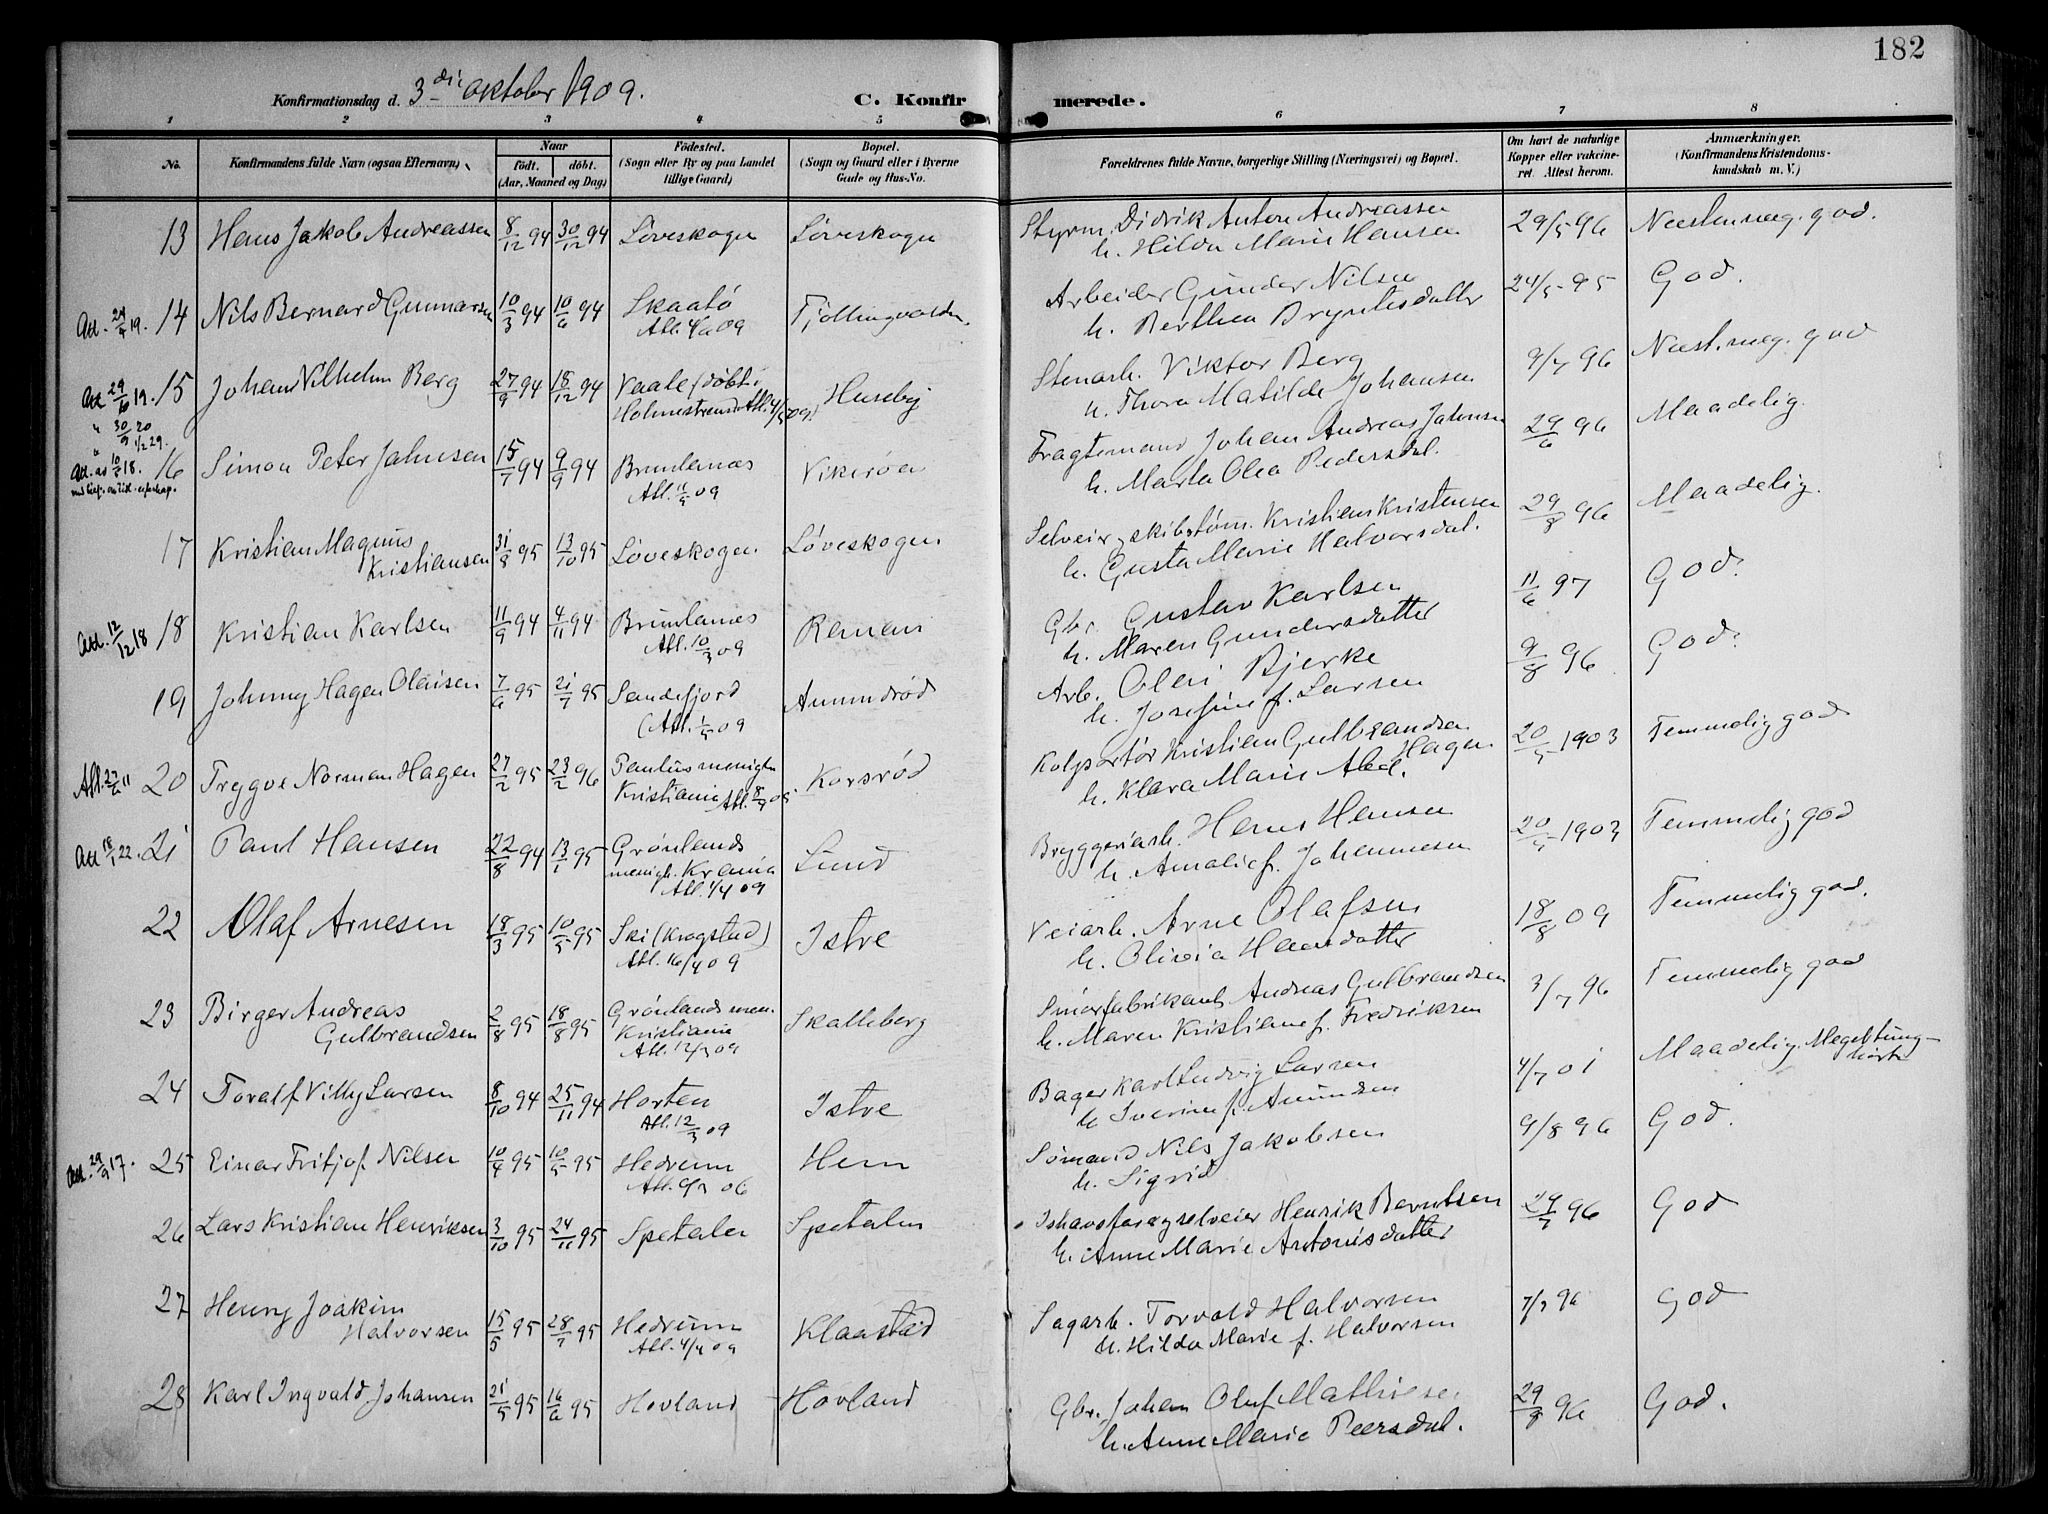 182
Konfirmationsdag d. 3die Oktober 1909.
C. Konfirmerede.
1 2 3 4 5 6 7 8
No.
Konfirmandens fulde Navn (ogsaa Efternavn).
Naar
født. døbt.
(Aar, Maaned og Dag)
Fødested.
(Sogn eller By og paa Landet
tillige Gaard)
Bopæl.
(Sogn og Gaard eller i Byerne
Gade og Hus-No.
Forældrenes fulde Navne, borgerlige Stilling (Næringsvei) og Bopæl.
Om havt de naturlige
Kopper eller vakcine-
ret. Attest herom.
Anmærkninger.
(Konfirmandens Kristendoms-
kundskab m. V.)
13 Hans Jakob Andreassen 8/12 94 30/12 94 Løveskogen Løveskogen Styrm. Didrik Anton Andreassen 29/5 96 Næsten meg. god.
h. Hilda Marie Hansen
Att. 24/4 19. 14 Nils Bernard Gunnarsen 10/3 94 10/6 94 Skaatø Fjøllingvolden. Arbeider Gunder Nilsen 24/5 95 God.
Atl. 09 h. Berthea Bryntesdatter
Att 29/10 19. 15 Johan Vilhelm Berg 27/9 94 18/12 94 Vaale (døbt i Huseby Stenarb. Viktor Berg 9/7 96 Næst. meg. god
" 30/9 20 Holmestrand) Atl. 4/5 09. h. Thora Matilde Johansen
" 1/2 29.
Att. 10/5 18. 16 Simon Peter Jahnsen 15/7 94 9/9 94 Brunlanes Vikerøa Fragtemand Johan Andreas Jahnsen 29/6 96 Maadelig.
Atl. 11/5 09 h. Marta Olea Pedersdat.
17 Kristian Magnus 31/8 95 13/10 95 Løveskogen. Løveskogen Selveier, skibstøm. Kristian Kristensen 29/8 96 Maadelig.
Kristiansen h. Gusta Marie Halvorsdat.
Att. 12/12 18 18 Kristian Karlsen 11/9 94 4/11 94 Brunlanes Reman Gbr. Gustav Karlsen 11/6 97 God.
Atl. 10/3 09 h. Maren Gundersdatter
19 Johnny Hagen Olaisen 7/6 95 21/7 95 Sandefjord Amundrød Arb. Olai Bjerke 9/8 96 God.
(Atl. 1/5 09 h. Josefine f. Larsen
Atl. 27/6 11 20 Trygve Norman Hagen 27/2 95 23/2 96 Paulus menighe Korsrød Kolportør Kristian Gulbrandsen 20/5 1903 Temmelig god
Kristiania Atl. 8/9 09. Hagen h. Klara Marie Abel.
Att 18/1 22. 21 Paul Hansen 22/8 94 13/1 95 Grønlands Lund Bryggeriarb. Hans Hansen 20/5 1903 Temmelig god
menigh. Krania h. Amalie f. Johannesen
Atl. 1/4 09
22 Olaf Arnesen 18/3 95 10/5 95 Ski (Kragstad) Istre Veiarb. Arne Olafsen 18/8 09 Temmelig god.
Atl. 16/4 09 h. Olivia Hansdatter
23 Birger Andreas 2/8 95 18/8 95 Grønlands men. Skalleberg Smørfabrikant Andreas Gulbrandsen 3/7 96 Temmelig god
Gulbrandsen Kristiania h. Maren Kristiane f. Fredriksen
Atl. 12/3 09
24 Toralf Villy Larsen 8/10 94 25/11 94 Horten Istre Bager Karl Ludvig Larsen 4/7 01 Maadelig. Meget tung-
Atl. 12/3 09 h. Iverine f. Amundsen hørt
Att. 29/9 17. 25 Einar Fritjof Nilsen 10/4 95 10/5 95 Hedrum Hem Sømand Nils Jakobsen 9/8 96 God.
Atl. 06 h. Sigrid
26 Lars Kristian Henriksen 3/10 95 24/11 95 Spetalen Spetalen Ishavsfarer, selveier Henrik Berntsen 29/7 96 God
h. Anne Marie Antonisdatter
27 Henry Joakim 15/5 95 28/7 95 Hedrum Klaastad Sagarb. Torvald Halvorsen 7/7 96 God
Halvorsen Atl. 4/4 09 h. Hilda Marie f. Halvorsen
28 Karl Ingvald Johansen 21/5 95 16/6 95 Hovland Hovland Gbr. Johan Oluf Mathisen 29/8 96 God.
h. Anne Marie Peersdat.